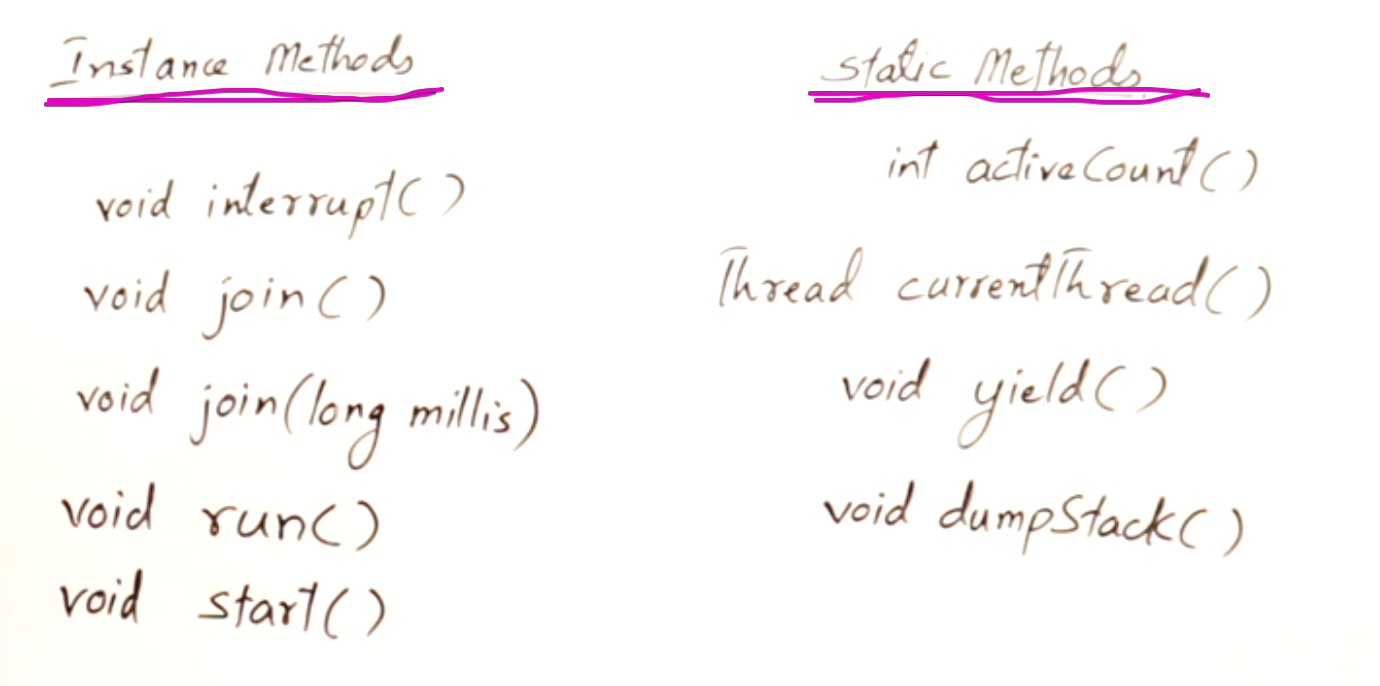 Instance Methods
void interrupt()
void join()
void join(long millis)
void run()
void start()
Static Methods
int activeCount()
Thread currentThread()
void yield()
void dumpStack()